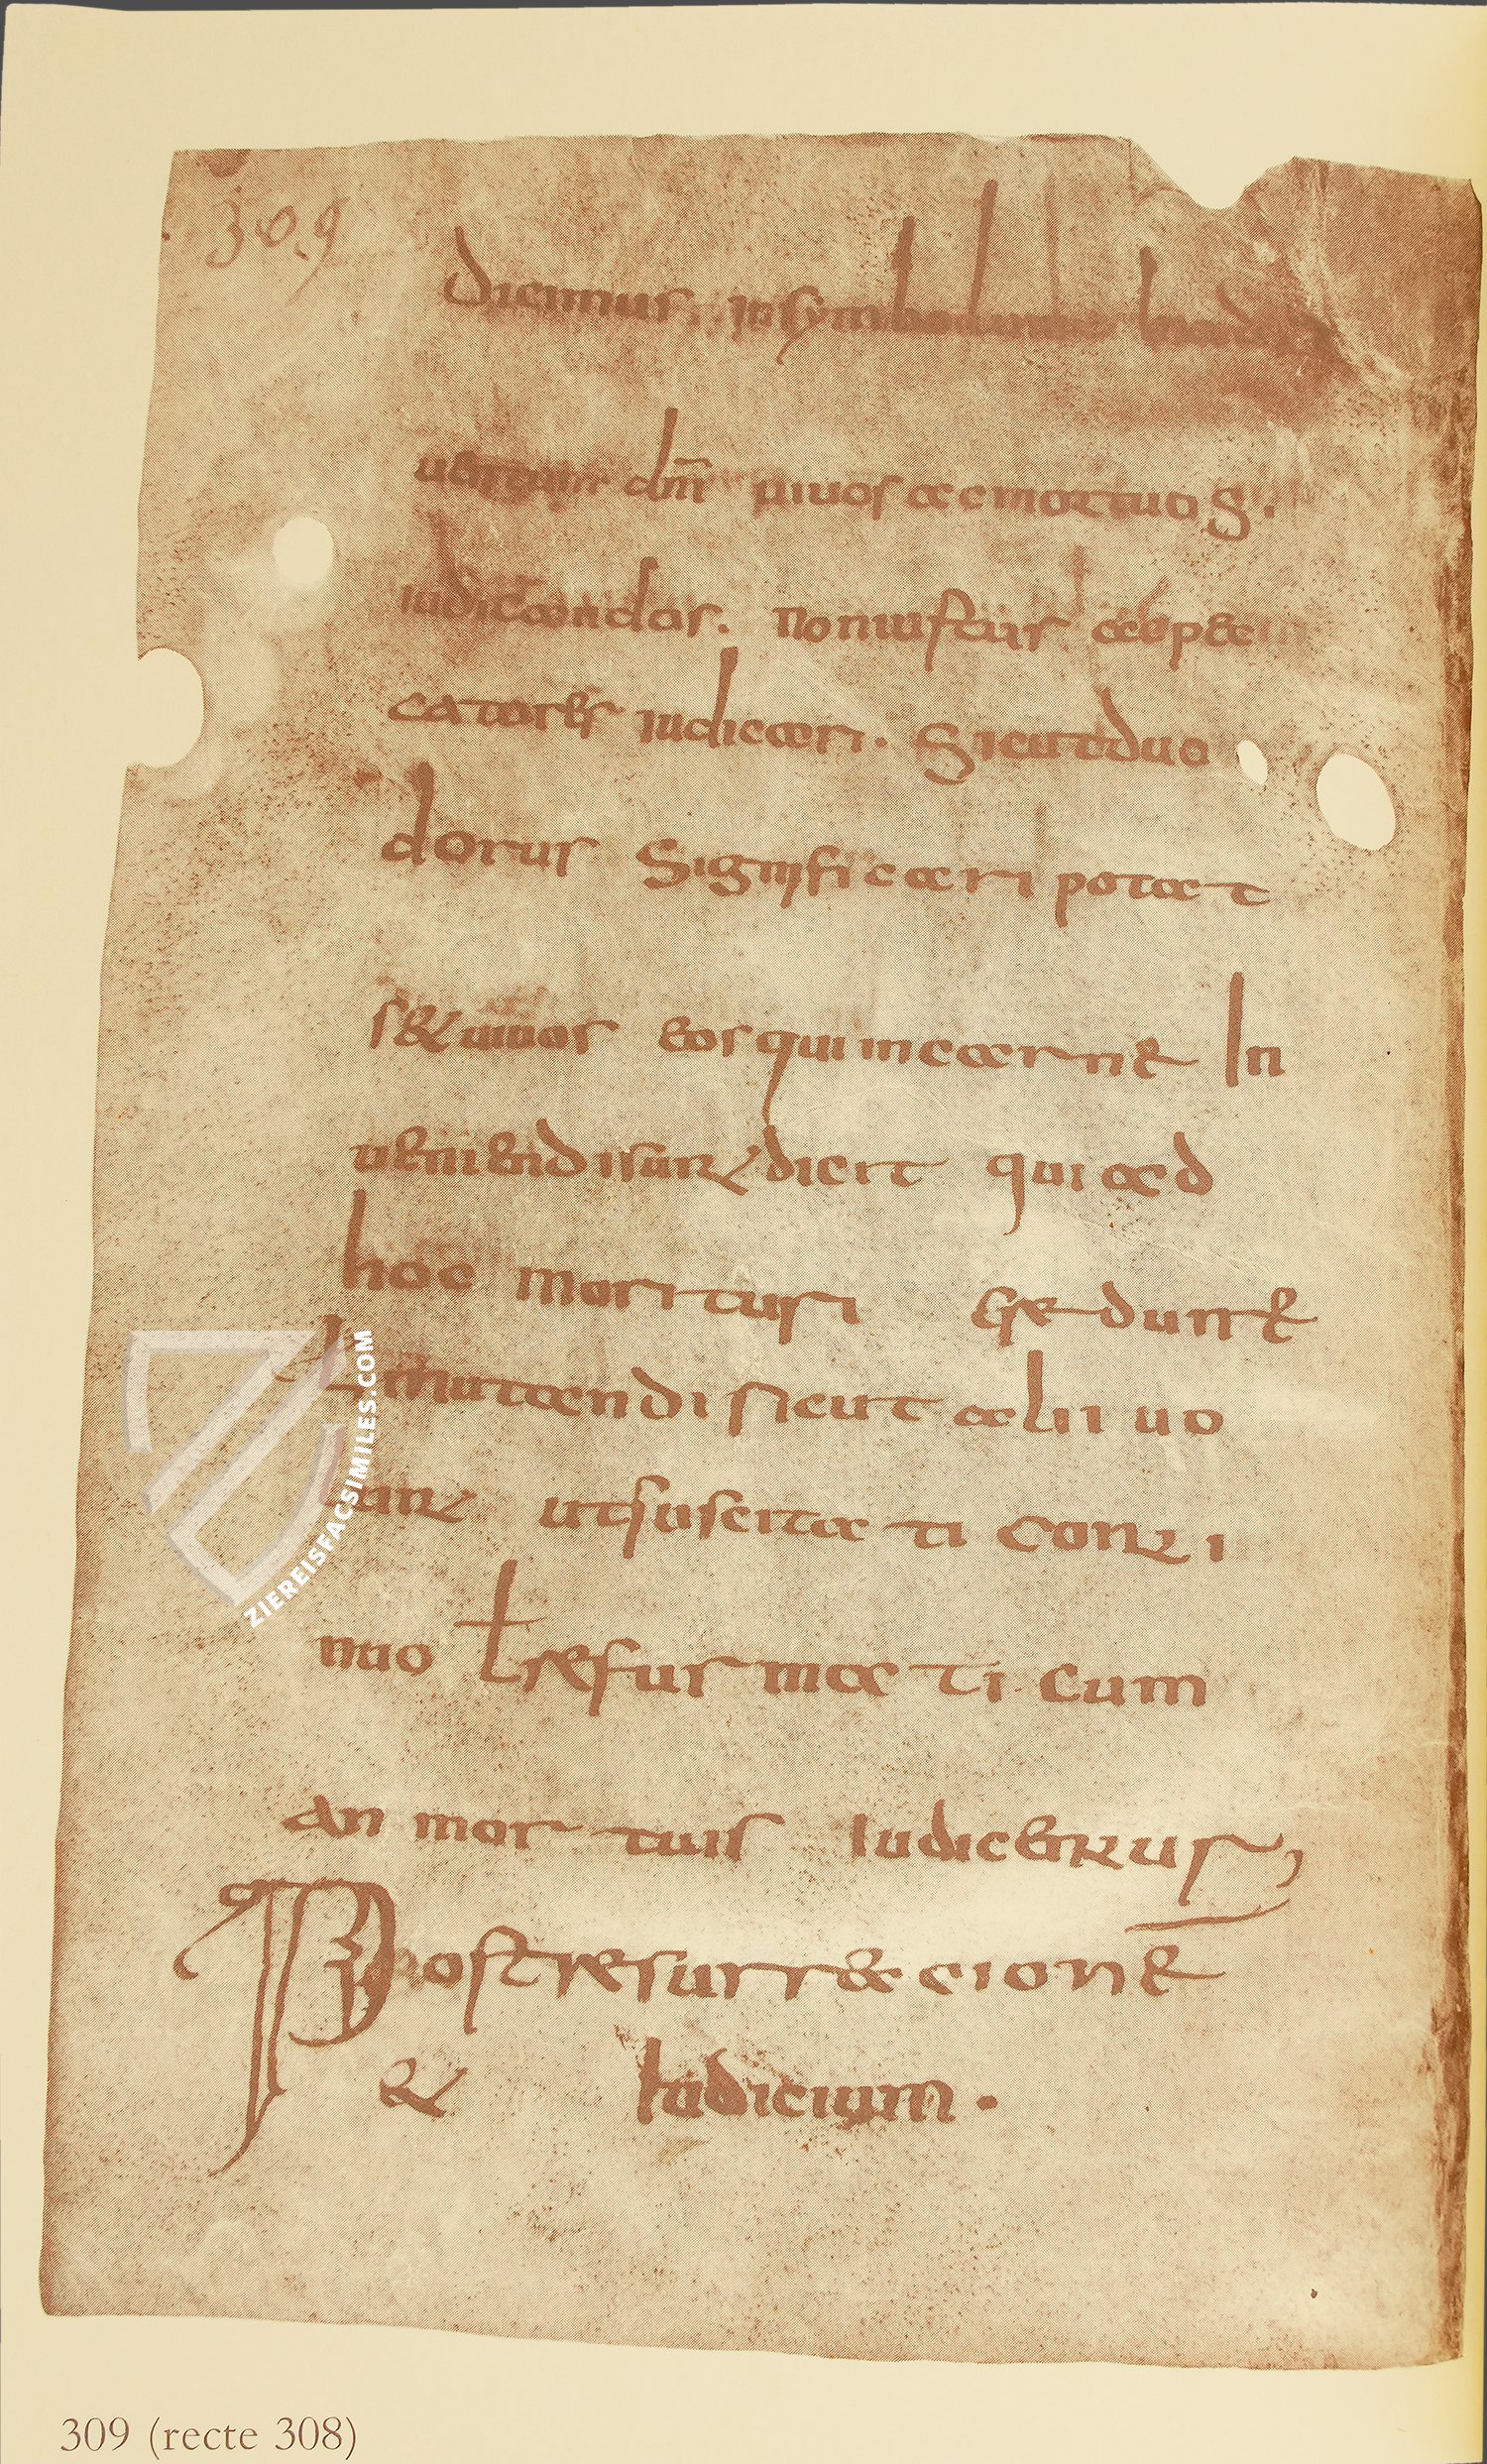 309
dicimus. in symbolum
uenturū dnī uiuos ac mortuos.
iudicandos. non iustus ac pec
catores iudicari. Sicut duo
dorus significari potat
s& uiuos eos qui in carne In
ueniendi sunt dicit qui ad
hoc morituri credunt
ł mutandi sicut alii uo
lunt ut suscitati conti
nuo ł refurmati cum
an mortuis iudicentur,
Post resurreccione
& Iudicium.
ZIEREISFACSIMILES.COM
309 (recte 308)